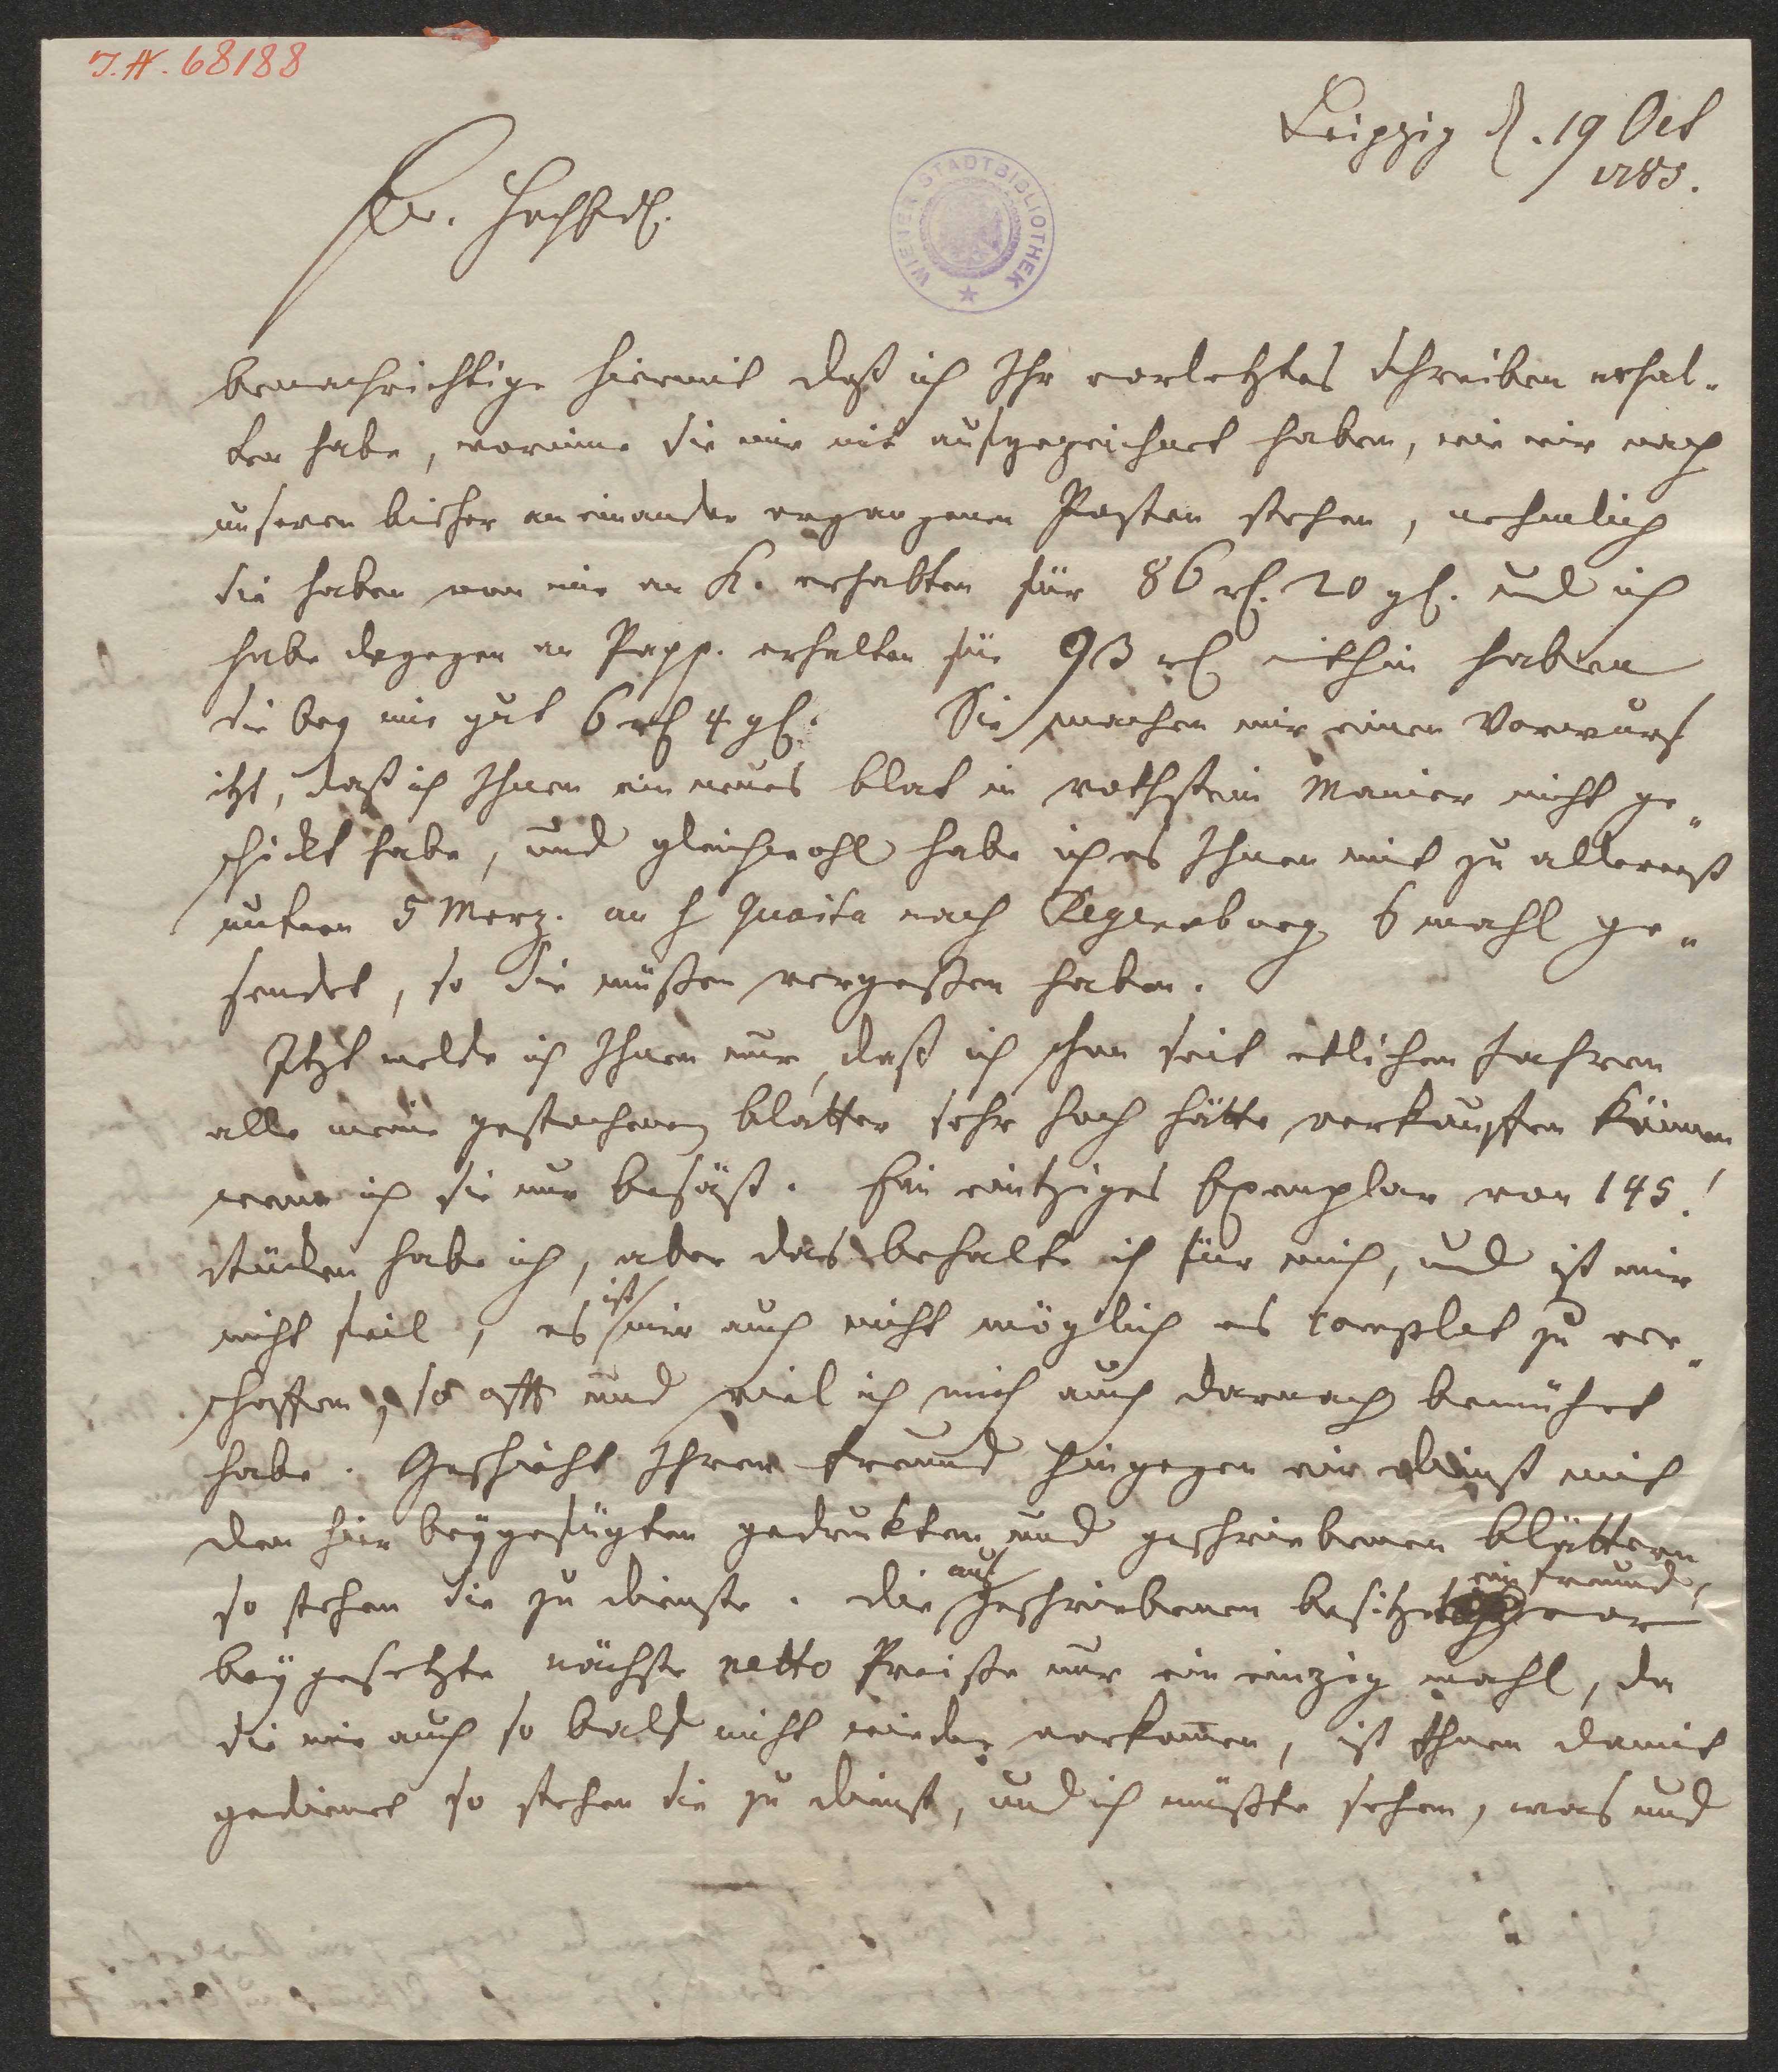 J.N. 68188
Leipzig d. 19 Oct
1783.
Ew. HochEdl.
WIENER STADTBIBLIOTHEK
benachrichtige hiermit daß ich Ihr vorletztes Schreiben erhal-
ten habe, worinne Sie mir mit aufgezeichnet haben, wie wir nach
unseren bisher aneinander ergangenen Posten stehen, nehmlich
Sie haben von mir an K. erhalten für 86 rl. 20 gl. und ich
habe dagegen an Papp. erhalten für 93 rl mithin haben
Sie bey mir gut 6 rl 4 gl. Sie machen mir einen Vorwurf
itzt, daß ich Ihnen ein neues Blat in rothstein Manier nicht ge-
schickt habe, und gleichwohl habe ich es Ihnen mit zu allererst
unterm 5 Merz. an H Quaita nach Regensburg 6 mahl ge-
sendet, so Sie müßen vergeßen haben.
Itzt melde ich Ihnen nur, daß ich schon seit etlichen Jahren
alle meine gestochenen Blätter sehr hoch hätte verkauffen können
wenn ich sie nur besäß. Ein eintziges Exemplar von 145!
Stücken habe ich, aber das behalte ich für mich, und ist mir
nicht feil, es ist mir auch nicht möglich es complet zu ver-
schaffen, so offt und viel ich mich auch darnach bemühet
habe. Geschieht Ihrem Freund hingegen ein Dienst mit
den hier beygefügten gedruckten und geschriebenen Blättern
so stehen sie zu Dienste. Die aufgeschriebenen besitzet ein Freund,
beygesetzte nächste netto Preiße nur ein einzig mahl, da
sie mir auch so bald nicht wieder vorkommen, ist Ihnen damit
gedienet so stehen sie zu Dienst, und ich müßte sehen, was und